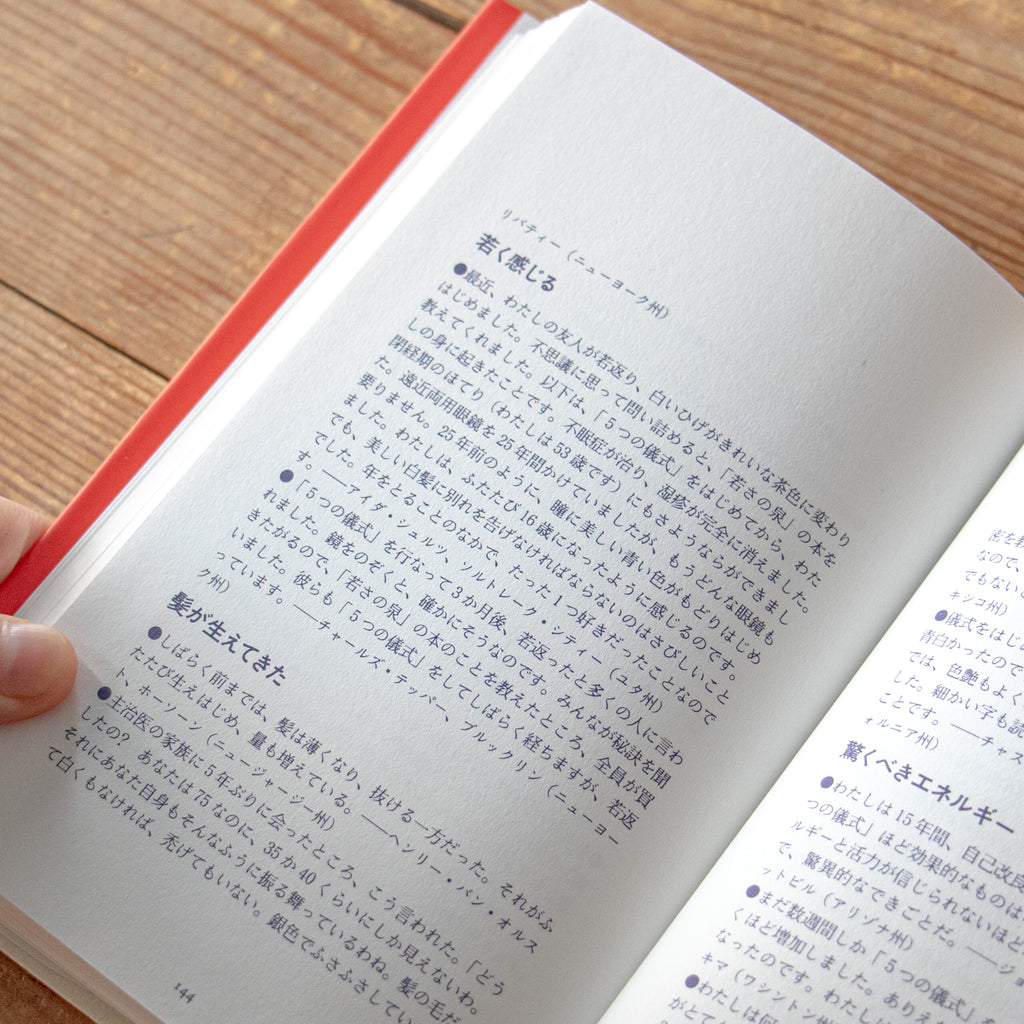 リバティー（ニューヨーク州）
若く感じる
●最近、わたしの友人が若返り、白いひげがきれいな茶色に変わり
はじめました。不思議に思って問い詰めると、「若さの泉」の本を
教えてくれました。以下は、「５つの儀式」をはじめてから、わた
しの身に起きたことです。不眠症が治り、湿疹が完全に消えました。
閉経期のほてり（わたしは53歳です）にもさようならができまし
た。遠近両用眼鏡を25年間かけていましたが、もうどんな眼鏡も
要りません。25年前のように、瞳に美しい青い色がもどりはじめ
ました。わたしは、ふたたび16歳になったように感じるのです。
でも、美しい白髪に別れを告げなければならないのはさびしいこと
でした。年をとることのなかで、たった１つ好きだったことなので
す。――アイダ・シュルツ、ソルトレーク・シティー（ユタ州）
●「５つの儀式」を行なって３か月後、若返ったと多くの人に言わ
れました。鏡をのぞくと、確かにそうなのです。みんなが秘訣を聞
きたがるので、「若さの泉」の本のことを教えたところ、全員が買
いました。彼らも「５つの儀式」をしてしばらく経ちますが、若返
っています。――チャールズ・テッパー、ブルックリン（ニューヨー
ク州）
髪が生えてきた
●しばらく前までは、髪は薄くなり、抜ける一方だった。それがふ
たたび生えはじめ、量も増えている。――ヘンリー・バン・オルス
ト、ホーソーン（ニュージャージー州）
●主治医の家族に５年ぶりに会ったところ、こう言われた。「どう
したの？　あなたは75なのに、35か40くらいにしか見えないわ。
それにあなた自身もそんなふうに振る舞っているわね。髪の毛だ
て白くもなければ、禿げてもいない。銀色でふさふさしてい
144
なので、
でもない
キシコ州）
●儀式をはじ
青白かったので
では、色艶もよく
した。細かい字も読
ことです。――チャス
ォルニア州）
驚くべきエネルギー
●わたしは15年間、自己改良
つの儀式」ほど効果的なものは
ルギーと活力が信じられないほど
で、驚異的なできごとだ。――ジョ
ットビル（アリゾナ州）
●まだ数週間しか「５つの儀式」を
くほど増加しました。ありえ
なったのです。わたしは
キマ（ワシントン州
●わたしは何
がとてん